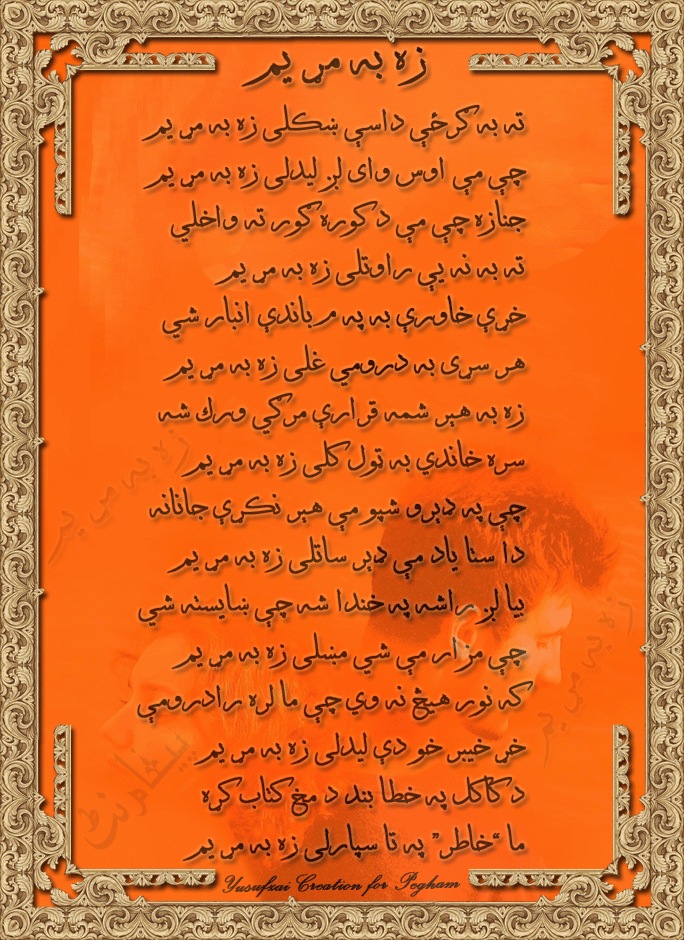 زه به مړ يم
ته به ګرځې داسې ښکلی زه به مړ يم
چې مې اوس وای لږ ليدلی زه به مړ يم
جنازه چې مې د کوره ګور ته واخلي
ته به نه يې راوتلی زه به مړ يم
خړې خاورې به په ما باندې انبار شي
هر سړی به درومي غلی زه به مړ يم
زه به هېر شمه قرارې مرګي ورك شه
سره خاندي به ټول کلی زه به مړ يم
چې په ډېرو شپو مې هېر نکړې جانانه
دا ستا ياد مې ډېر ساتلی زه به مړ يم
بيا لږ راشه په خندا شه چې ښايسته شي
چې مزار مې شي مښلی زه به مړ يم
که نور هيڅ نه وي چې ما لره رادرومې
خړ خيبر خو دې ليدلی زه به مړ يم
د کاکل په خطا بند د مخ کتاب کړه
ما “خاطر” په تا سپارلی زه به مړ يم
Yusufzai Creation for Pegham
زه به مړ يم
زه به مړ يم